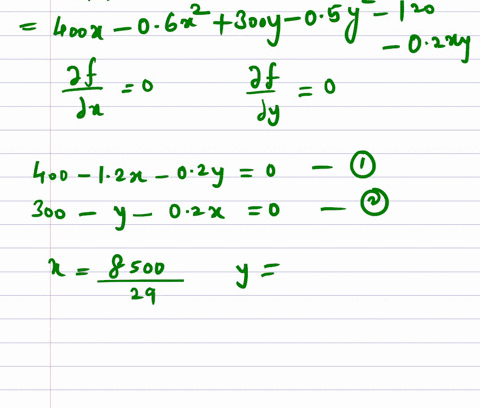 = 400x - 0.6x² + 300y - 0.5y² - 120 - 0.2xy
∂f/∂x = 0 ∂f/∂y = 0
400 - 1.2x - 0.2y = 0 — ①
300 - y - 0.2x = 0 — ②
x = 8500/29 y =